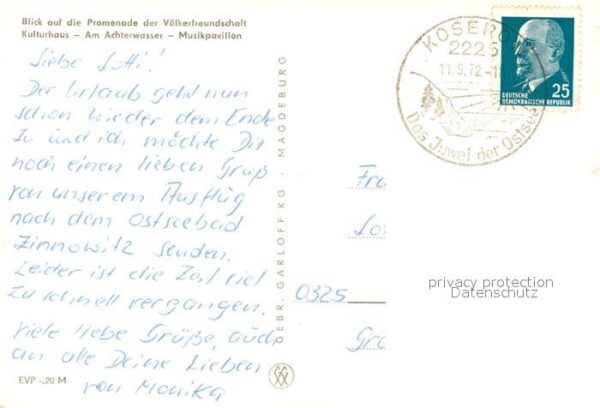 Blick auf die Promenade der Völkerfreundschaft
Kulturhaus – Am Achterwasser – Musikpavillon
Liebe Lotti!
Der Urlaub geht nun
schon wieder dem Ende
zu und ich möchte Dir
noch einen lieben Gruß
von unserem Ausflug
nach dem Ostseebad
Zinnowitz senden.
Leider ist die Zeit viel
zu schnell vergangen.
Viele liebe Grüße, auch
an alle Deine Lieben
von Monika
EVP -,20 M
GEBR. GARLOFF KG · MAGDEBURG
KOSEROW
2225
11.9.72-1
Das Juwel der Ostsee
25
DEUTSCHE
DEMOKRATISCHE REPUBLIK
Fr
0325
Gr
privacy protection
Datenschutz